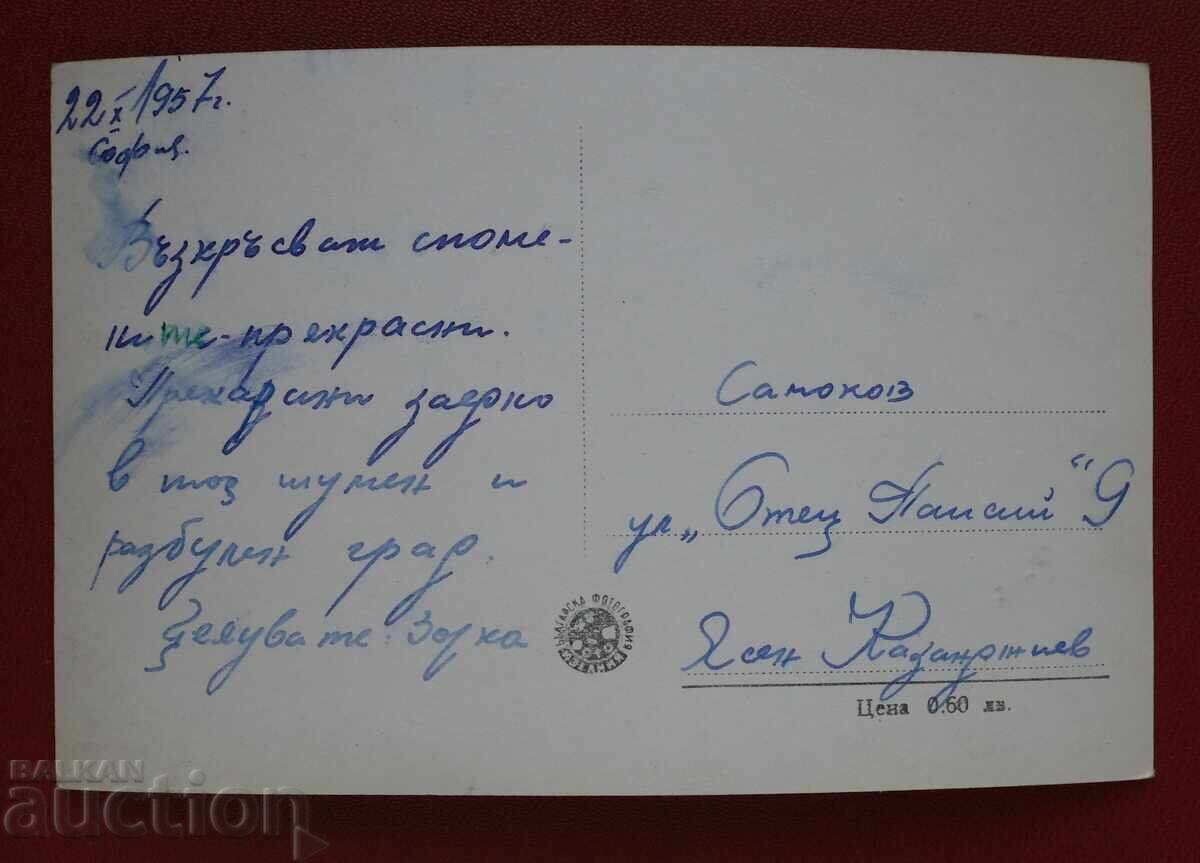 22 X 1957 г.
София.
Възкръсват споме-
ните-прекрасни.
Прекарани заедно
в тоз шумен и
разбулен град.
Целува те: Зорка
Самоков
ул. „Отец Паисий“ 9
Ясен Казанджиев
Цена 0.60 лв.
БЪЛГАРСКА ФОТОГРАФИЯ
BALKAN
auction